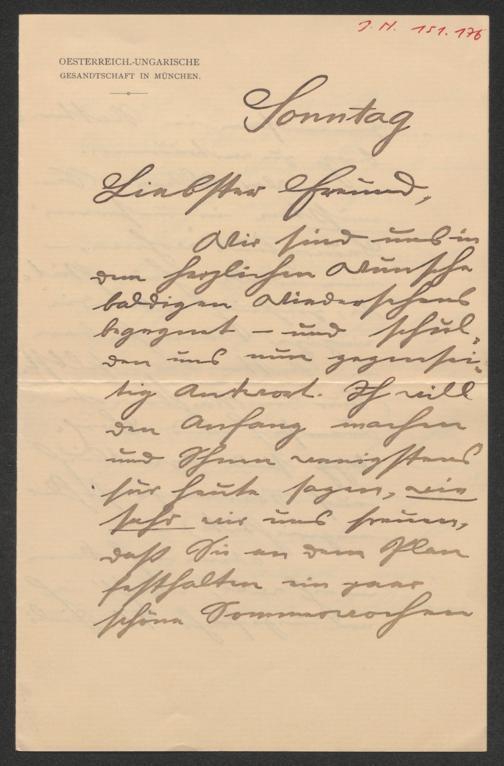 J. N. 151.176
OESTERREICH.-UNGARISCHE
GESANDTSCHAFT IN MÜNCHEN.
Sonntag
Liebster Freund,
Wir sind uns in
dem herzlichen Wunsche
baldigen Wiedersehens
begegnet – und schul-
den uns nun gegensei-
tig Antwort. Ich will
den Anfang machen
und Ihnen wenigstens
für heute sagen, wie
sehr wir uns freuen,
daß Sie an dem Plan
festhalten ein paar
schöne Sommerwochen